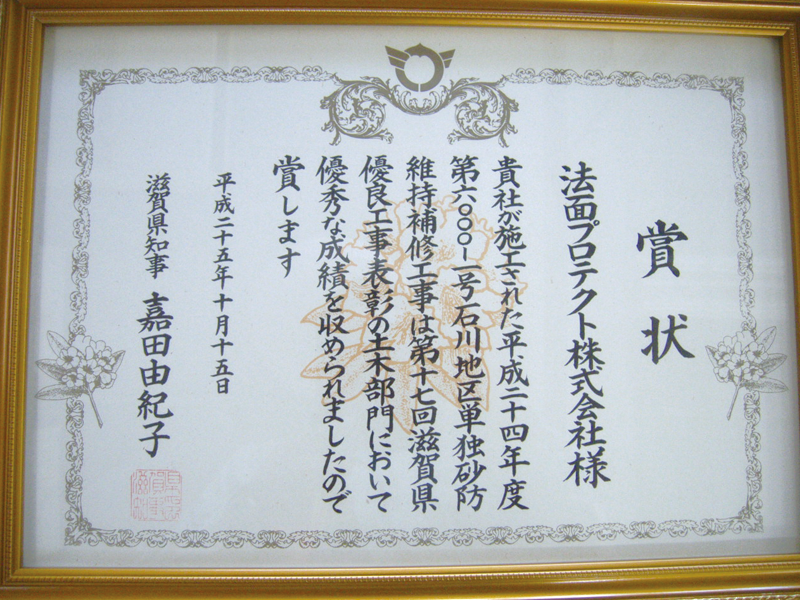 賞状
法面プロテクト株式会社様
貴社が施工された平成二十四年度
第六〇〇〇-一号石川地区単独砂防
維持補修工事は第十七回滋賀県
優良工事表彰の土木部門において
優秀な成績を収められましたので
賞します
平成二十五年十月十五日
滋賀県知事 嘉田由紀子